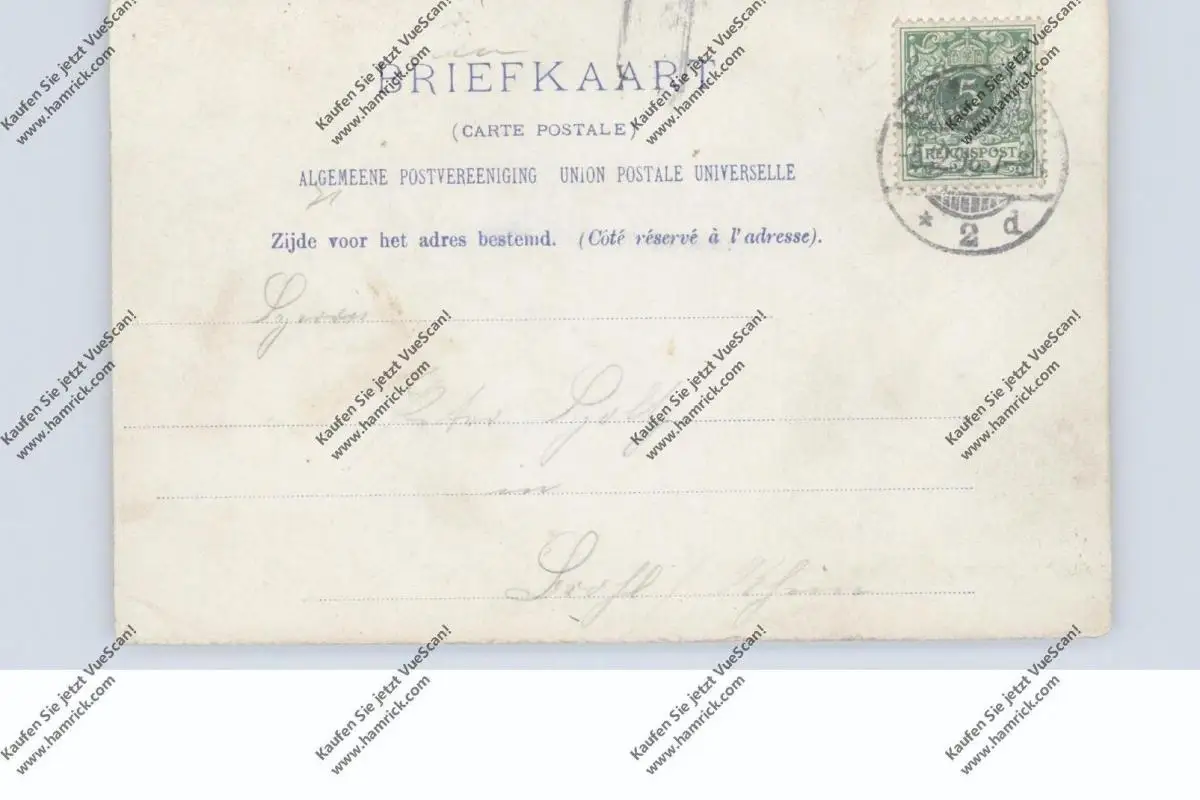 BRIEFKAART
(CARTE POSTALE)
ALGEMEENE POSTVEREENIGING UNION POSTALE UNIVERSELLE
Zijde voor het adres bestemd. (Côté réservé à l'adresse).
5
REICHSPOST
* 2 d
Herrn
in
Brohl / Rhein
Kaufen Sie jetzt VueScan!
www.hamrick.com
Kaufen Sie jetzt VueScan!
www.hamrick.com
Kaufen Sie jetzt VueScan!
www.hamrick.com
Kaufen Sie jetzt VueScan!
www.hamrick.com
Kaufen Sie jetzt VueScan!
www.hamrick.com
Kaufen Sie jetzt VueScan!
www.hamrick.com
Kaufen Sie jetzt VueScan!
www.hamrick.com
Kaufen Sie jetzt VueScan!
www.hamrick.com
Kaufen Sie jetzt VueScan!
www.hamrick.com
Kaufen Sie jetzt VueScan!
www.hamrick.com
Kaufen Sie jetzt VueScan!
www.hamrick.com
Kaufen Sie jetzt VueScan!
www.hamrick.com